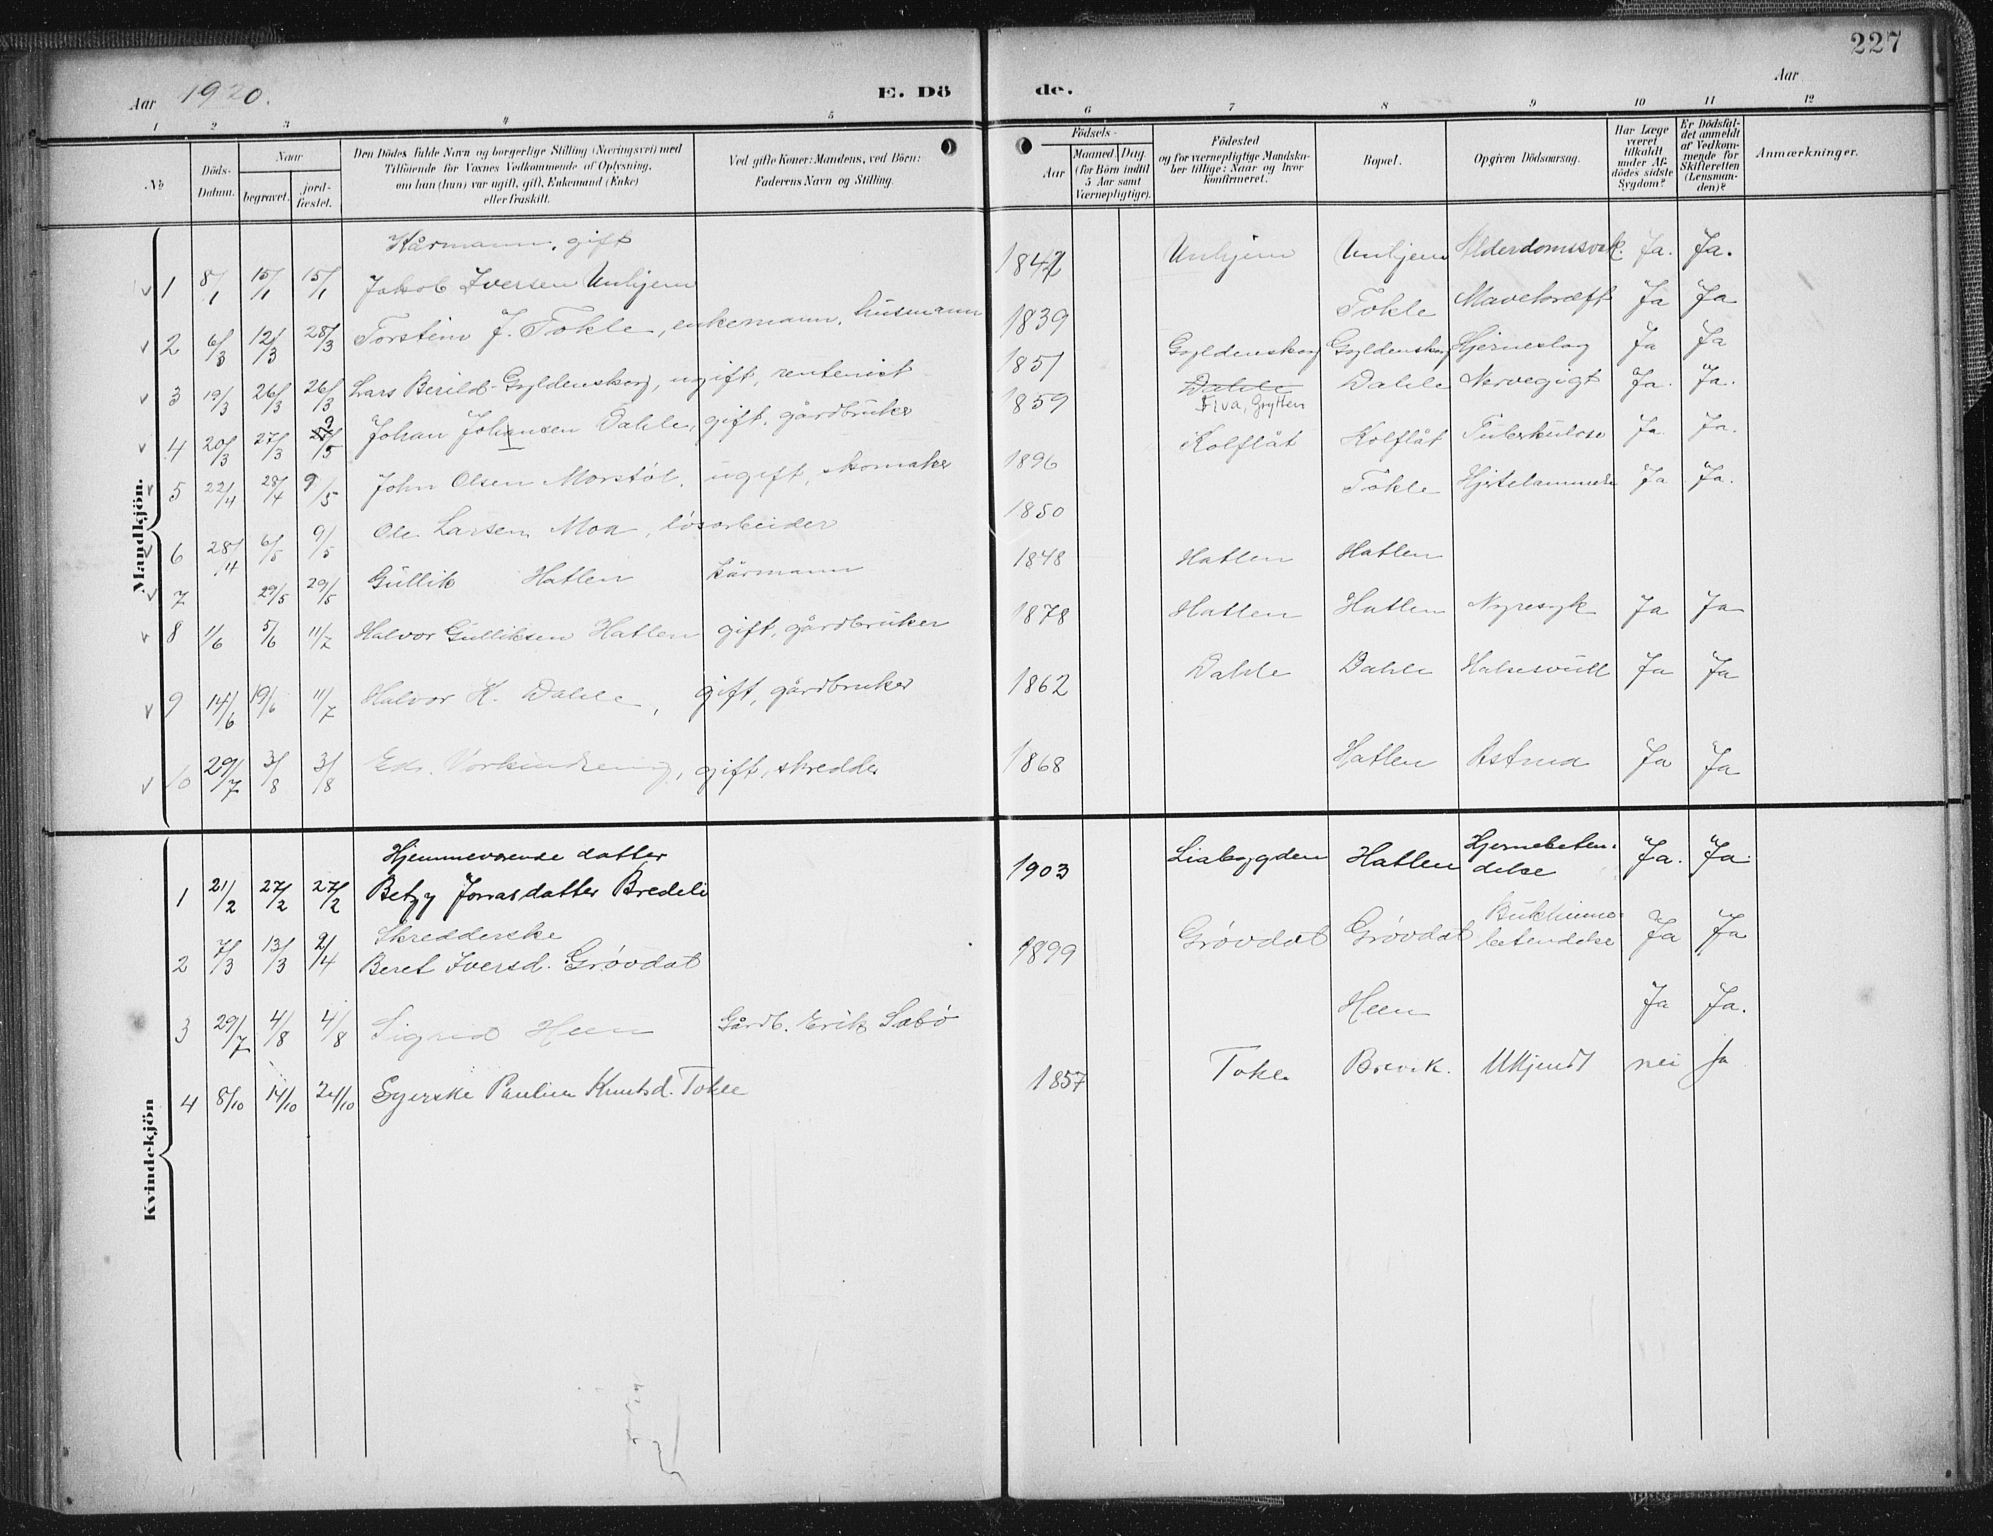 227
Aar 1920.
E. Dö de.
Aar
1 2 3 4 5 6 7 8 9 10 11 12
No
Döds-Datum.
Naar
begravet.
jord-fæstet.
Den Dödes fulde Navn og borgerlige Stilling (Næringsvei) med
Tilföiende for Voxnes Vedkommende af Oplysning,
om han (hun) var ugift, gift, Enkemand (Enke)
eller fraskilt.
Ved gifte Koner: Mandens, ved Börn:
Faderens Navn og Stilling.
Födsels-
Aar
Maaned. Dag.
(for Börn indtil
5 Aar samt
Værnepligtige).
Födested
og for værnepligtige Mandskaber tillige: Naar og hvor
konfirmeret.
Bopæl.
Opgiven Dödsaarsag.
Har Læge
været
tilkaldt
under Afdödes sidste
Sygdom?
Er Dödsfaldet anmeldt
af Vedkommende for
Skifteretten
(Lensmanden)?
Anmærkninger.
Mandkjön.
Kårmann, gift
1 8/1 15/1 15/1 Jakob Iversen Unhjem 1842 Unhjem Unhjem Alderdomssvek. Ja. Ja.
2 6/3 12/3 28/3 Torstein J. Tokle, enkemann, husmann 1839 Tokle Mavekræft Ja Ja
3 19/3 26/3 26/3 Lars Berild-Gyldenskog, ugift, rentenist 1851 Gyldenskog Gyldenskog Hjerneslag Ja Ja
4 20/3 27/3 /5 Johan Johansen Dahle, gift, gårdbruker 1859 Dahle Fiva, Grytten Dahle Nervegigt Ja. Ja.
5 22/4 28/4 9/5 John Olsen Morstøl, ugift, skomaker 1896 Kolflåt Kolflåt Tuberkulose Ja Ja.
6 28/4 6/5 9/5 Ole Larsen Moa, løsarbeider 1850 Tokle Hjertelammelse Ja Ja.
7 29/5 29/5 Gullik Hatlen kårmann 1848 Hatlen Hatlen
8 1/6 5/6 11/7 Halvor Gulliksen Hatlen gift, gårdbruker 1878 Hatlen Hatlen Nyresyk Ja Ja
9 14/6 19/6 11/7 Halvor K. Dahle, gift, gårdbruker 1862 Dahle Dahle Halsesvull Ja Ja
10 29/7 3/8 3/8 Edv. , gift, skredder 1868 Hatlen Astma Ja Ja
Kvindekjön
Hjemmeværende datter
1 21/2 27/2 27/2 Betzy Jonasdatter Bredeli 1903 Liabygden Hatlen Hjernebeten-delse Ja. Ja.
Skredderske
2 7/3 13/3 2/4 Beret Iversd. Grøvdal 1899 Grøvdal Grøvdal Bukhinne-betendelse Ja Ja
3 29/7 4/8 4/8 Sigrid Heen Gårdb. Erik Sæbø Heen Ja Ja.
4 8/10 14/10 24/10 Syerske Pauline Knutsd. Tokle 1857 Tokle Brevik. Ukjendt nei Ja